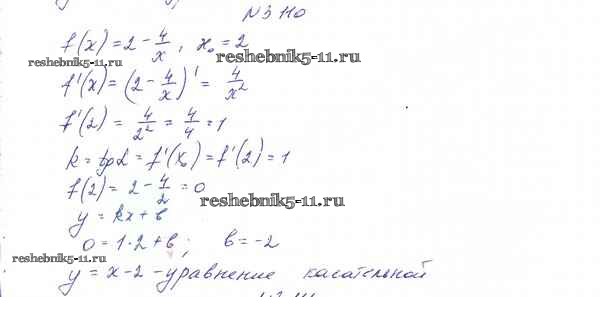 №3 110
f(x) = 2 - 4/x, x₀ = 2
reshebnik5-11.ru
reshebnik5-11.ru
f'(x) = (2 - 4/x)' = 4/x²
f'(2) = 4/2² = 4/4 = 1
k = tg α = f'(x₀) = f'(2) = 1
f(2) = 2 - 4/2 = 0
reshebnik5-11.ru
y = kx + b
0 = 1·2 + b; b = -2
reshebnik5-11.ru
y = x - 2 - уравнение касательной